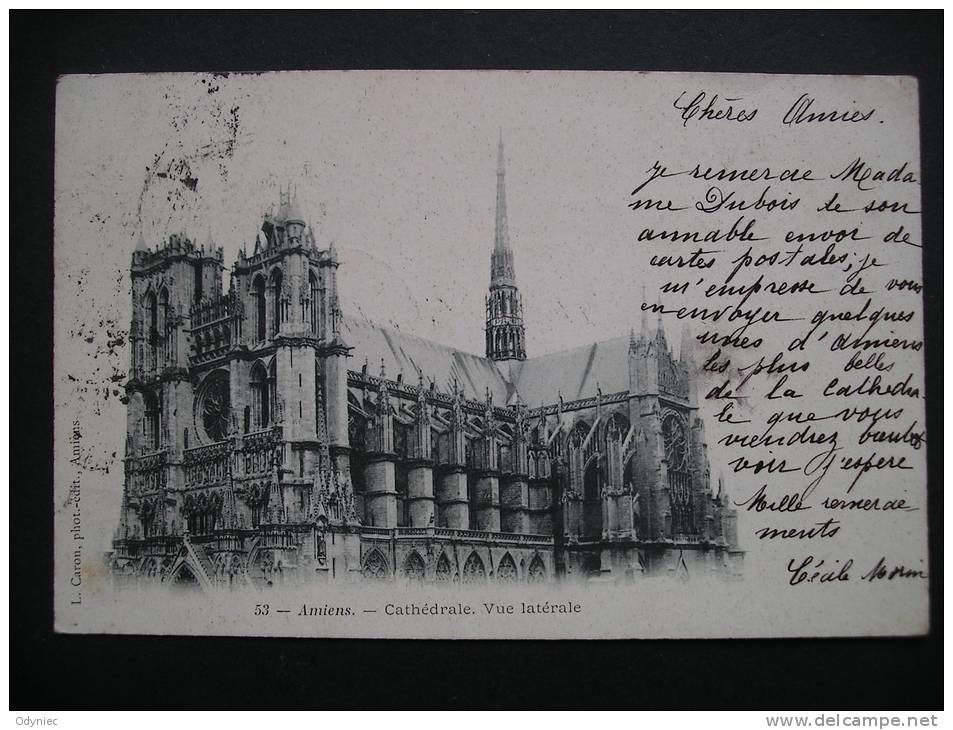 Chères Amies.
Je remercie Mada-
me Dubois de son
aimable envoi de
cartes postales, je
m'empresse de vous
en envoyer quelques
unes d'Amiens
les plus belles
de la Cathédra-
le que vous
viendrez bientôt
voir j'espère
Mille remercie
ments
Cécile Morin
L. Caron, phot.-édit., Amiens
53 — Amiens. — Cathédrale. Vue latérale
Odyniec
www.delcampe.net